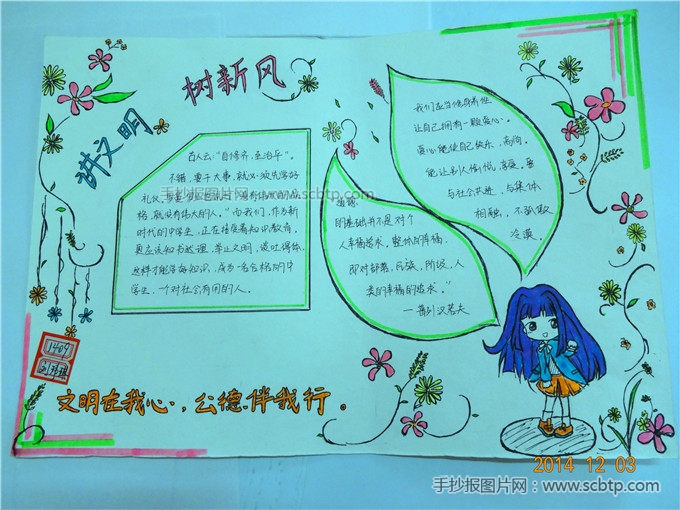 讲文明
树新风
古人云:"自修齐,至治平"。
不错,要干大事,就必须先学好
格,就没有伟大的人。"而我们,作为新
时代的中学生,正在接受着知识教育,
更应该知书达理,举止文明,谈吐得体,
这样才能学有知识,成为一名合格的中
学生,一个对社会有用的人。
道德
的基础并不是对个
人幸福追求,整体的幸福,
即对部落,民族,阶级,人
类的幸福的追求。"
——普列汉诺夫
我们应当修身养性
让自己拥有一颗爱心。
爱心能使自己快乐、高尚。
能让别人愉悦、
与社会共进,与集体
相融,不能做
冷漠。
1409
文明在我心,公德伴我行。
手抄报图片网-www.scbtp.com
2014 12 03
手抄报图片网:www.scbtp.com